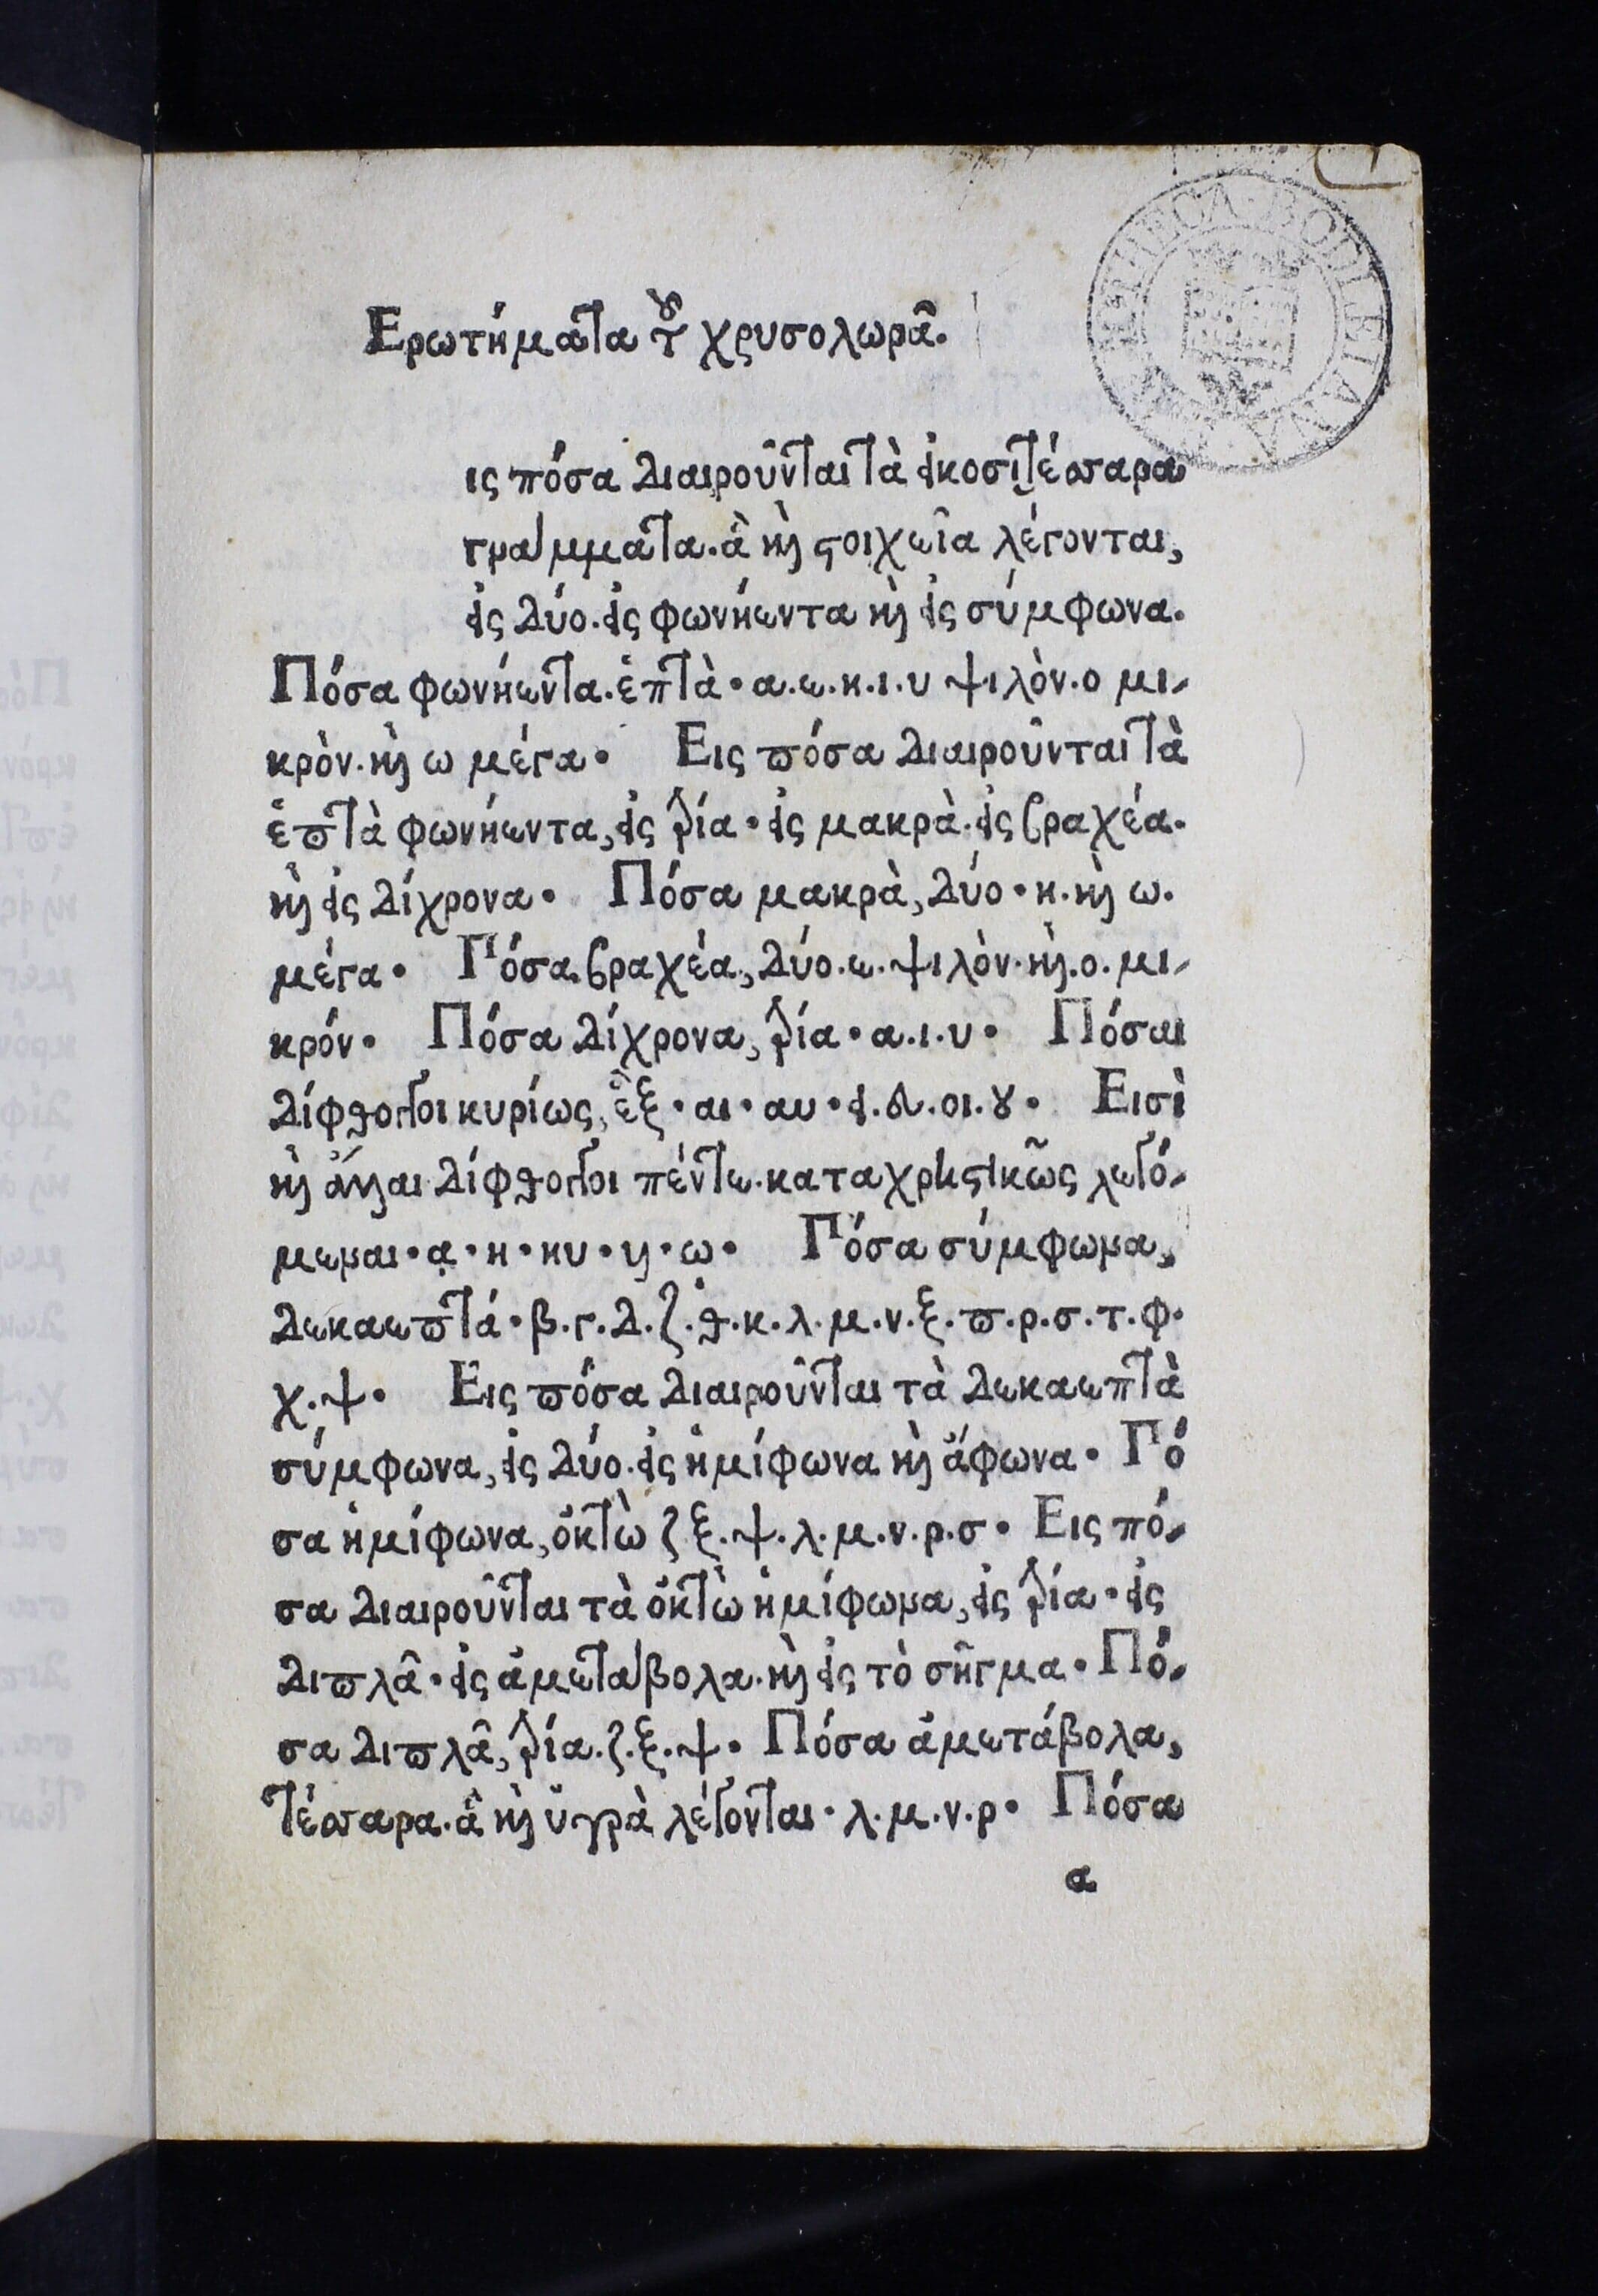 Ερωτήματα τοῦ χρυσολωρᾶ.
ις πόσα διαιροῦνται τὰ εἰκοσιτέσσαρα
γράμματα. ἃ καὶ στοιχεῖα λέγονται,
εἰς δύο. εἰς φωνήεντα καὶ εἰς σύμφωνα.
Πόσα φωνήεντα. ἑπτὰ· α.ε.η.ι.υ ψιλὸν. ο μι-
κρὸν. καὶ ω μέγα· Εις πόσα διαιροῦνται τὰ
ἑπτὰ φωνήεντα, εἰς τρία· εἰς μακρὰ. εἰς βραχέα.
καὶ εἰς δίχρονα· Πόσα μακρὰ, δύο· η. καὶ ω.
μέγα· Πόσα βραχέα, δύο. ε. ψιλὸν. καὶ. ο. μι-
κρόν· Πόσα δίχρονα, τρία· α.ι.υ· Πόσαι
δίφθογγοι κυρίως, ἓξ· αι· αυ· ει. ευ. οι. ου· Εισὶ
καὶ ἄλλαι δίφθογγοι πέντε. καταχρηστικῶς λεγό-
μεναι· ᾳ· η· ηυ· υι· ω· Πόσα σύμφωνα,
δεκαεπτά· β.γ.δ.ζ.θ.κ.λ.μ.ν.ξ.π.ρ.σ.τ.φ.
χ.ψ· Εις πόσα διαιροῦνται τὰ δεκαεπτὰ
σύμφωνα, εἰς δύο. εἰς ἡμίφωνα καὶ ἄφωνα· Πό
σα ἡμίφωνα, ὀκτὼ ζ ξ.ψ.λ.μ.ν.ρ.σ· Εις πό-
σα διαιροῦνται τὰ ὀκτὼ ἡμίφωνα, εἰς τρία· εἰς
διπλᾶ· εἰς ἀμετάβολα. καὶ εἰς τὸ σῆγμα· Πό-
σα διπλᾶ, τρία. ζ.ξ.ψ· Πόσα ἀμετάβολα,
τέσσαρα. ἃ καὶ ὑγρὰ λέγονται· λ.μ.ν.ρ· Πόσα
α